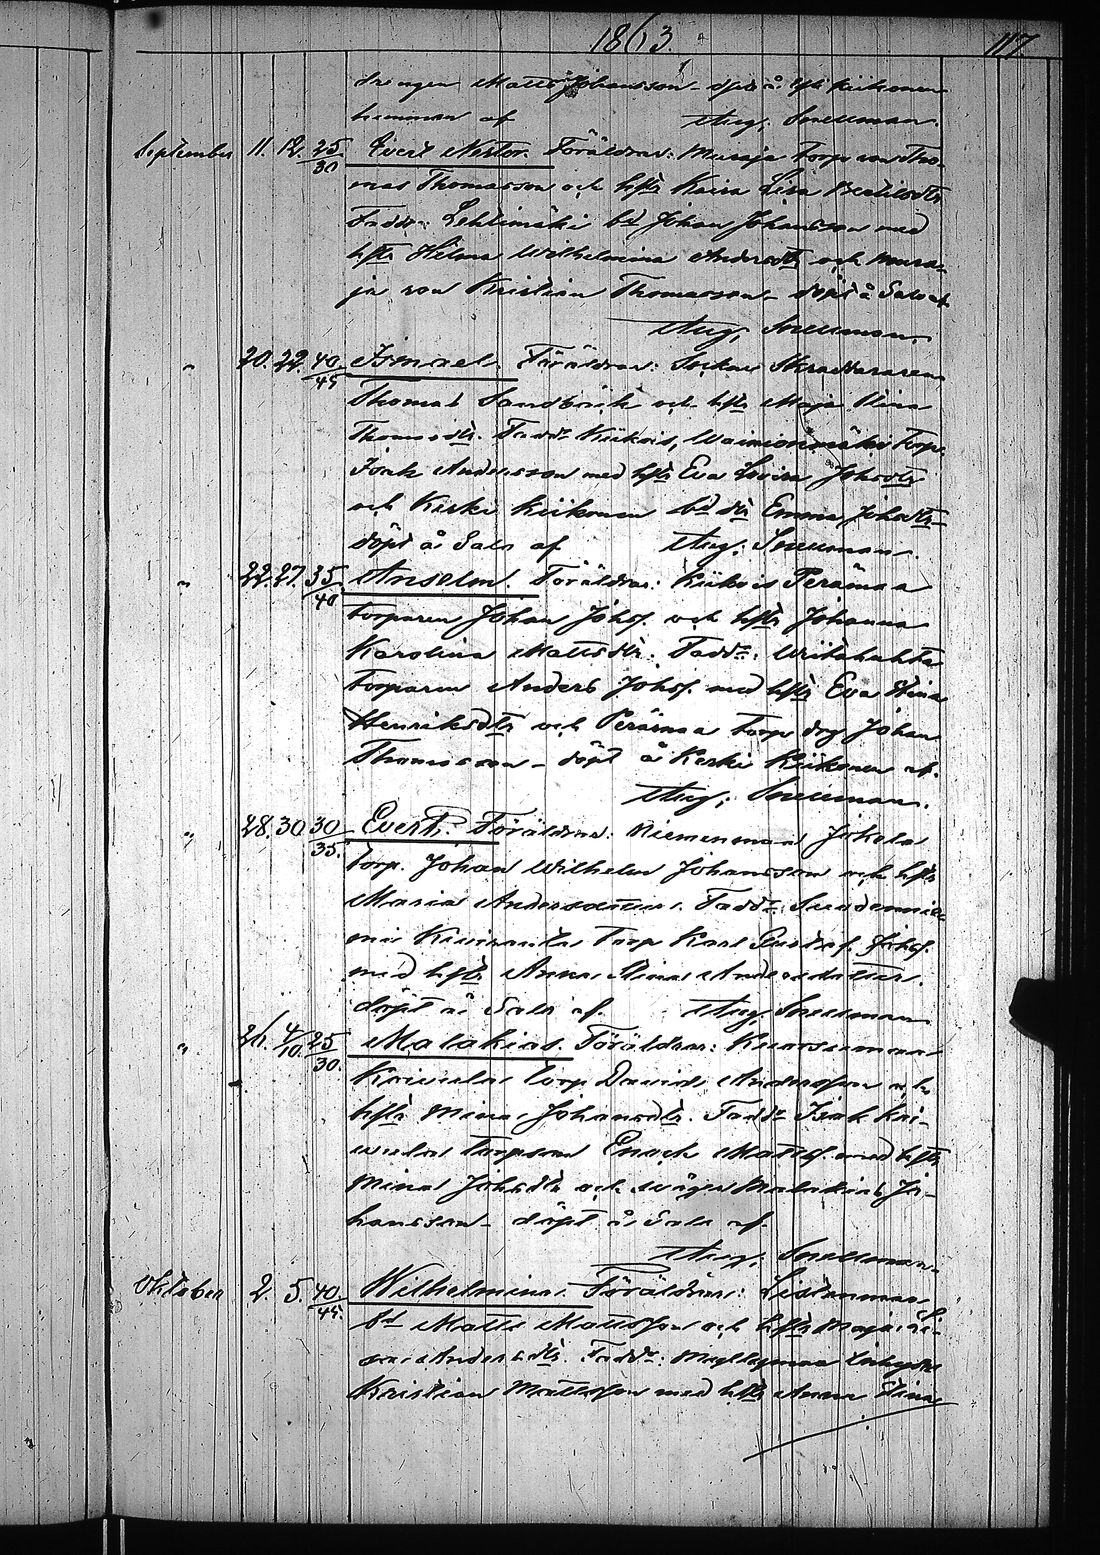 1863.
117
drengen Matts Johansson - döpt å Yli Kiikonen
hemman af Aug. Snellman.
September 11. 12. 25/30 Evert Nestor. Föräldrar: Muraja torp. son Tho-
mas Thomasson och hstr Kaisa Lisa
Fadd: Lehtimäki bd Johan Johansson med
hstr Hilma Wilhelmina Andersdtr och Mura-
ja son Kristian Thomasson - döpt å Salo af
Aug. Snellman.
" 20. 22. 40/45 Ismael. Föräldrar: Socken Skräddaren
Thomas Sandbäck och hstr Maja Stina
Thomasdtr. Fadd: Kiikois, Wainionmäki Torp.
Isak Andersson med hstr Eva Lovisa Johsdtr
och Keski Kiikonen bd dtr Emma Johsdtr
döpt å Salo af Aug. Snellman.
" 22. 27. 35/40 Anselm. Föräldrar: Kiikois Perämaa
torparen Johan Johss. och hstr Johanna
Karolina Mattsdtr. Fadd:
torparen Anders Johss. med hstr Eva Stina
Henriksdtr och Perämaa torp. drg Johan
Thomasson - döpt å Keski Kiikonen af
Aug. Snellman.
" 28. 30 30/35. Evert. Föräldrar: Niemenmaa Jokela
torp. Johan Wilhelm Johansson och hstr
Maria Andersdotter. Fadd: Suodennie-
mi Torp Karl Gustaf Johss.
med hstr Anna Stina Andersdotter.
döpt å Salo af Aug. Snellman
" 26. 4/10. 25/30. Malakias. Föräldrar:
Koivula torp David Andersson och
hstr Mina Johansdtr. Fadd: Isak Koi-
vula torpson Enock Mattss. med hstr
Mina Johsdtr och svåger Malakias Jo-
hansson - döpt å Salo af
Aug. Snellman.
Oktober 2. 5. 40/45. Wilhelmina. Föräldrar:
bd Matts Mattsson och hstr Maja Li-
sa Andersdtr. Fadd:
Kristian Mattsson med hstr Anna Stina